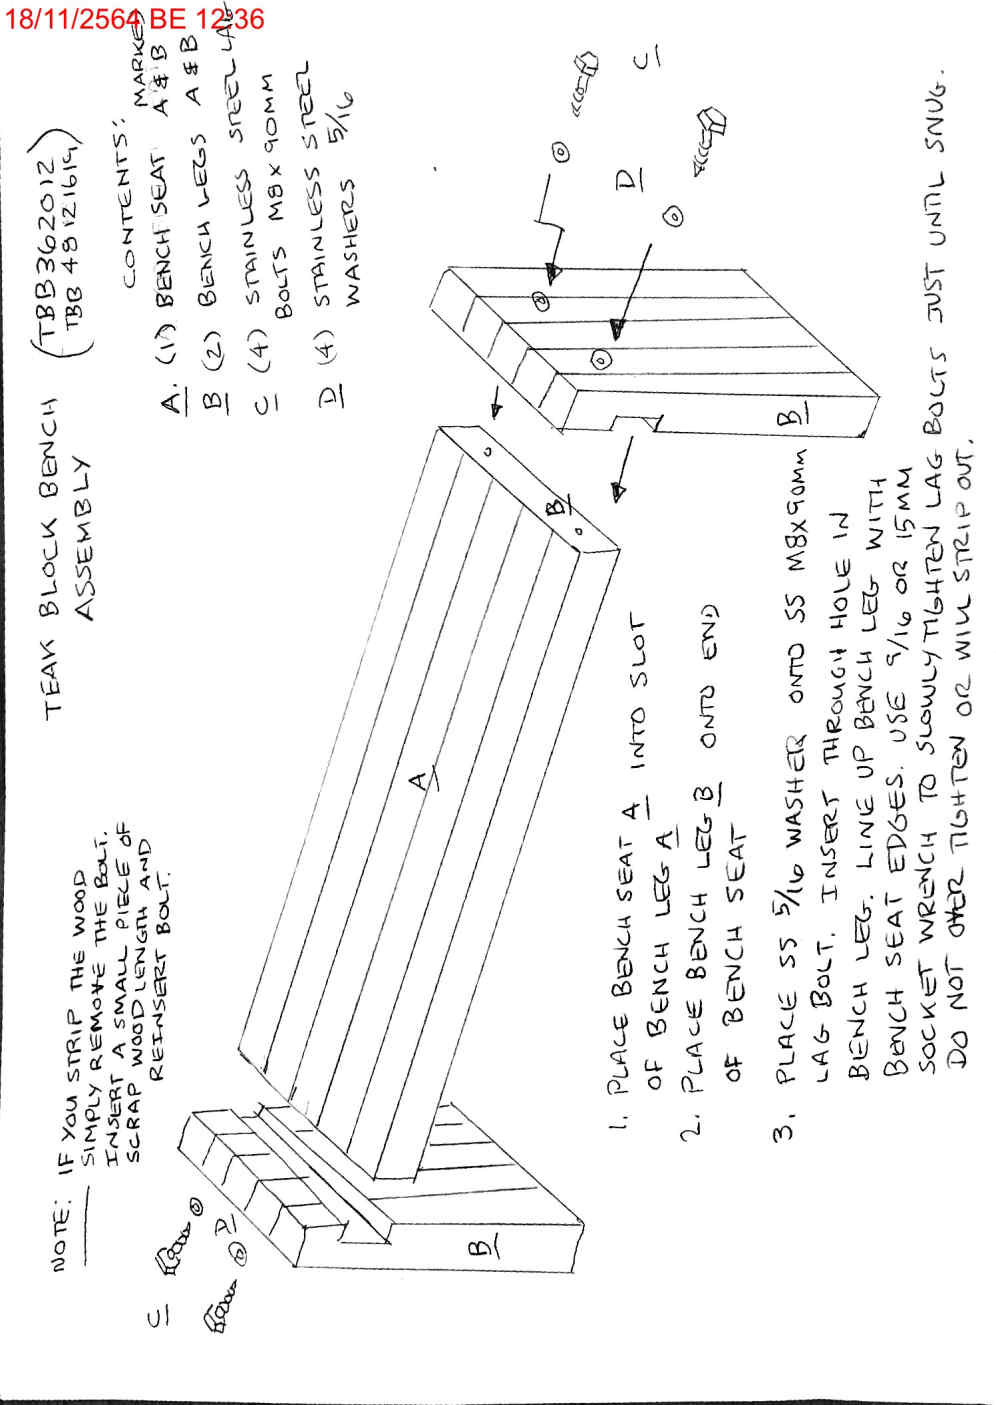 18/11/2564 BE 12:36
TEAK BLOCK BENCH
ASSEMBLY
(TBB362012
TBB 48121619)
CONTENTS: MARKED
A. (1) BENCH SEAT A & B
B (2) BENCH LEGS A & B
C (4) STAINLESS STEEL LAG
BOLTS M8 X 90MM
D (4) STAINLESS STEEL
WASHERS 5/16
NOTE: IF YOU STRIP THE WOOD
SIMPLY REMOVE THE BOLT.
INSERT A SMALL PIECE OF
SCRAP WOOD LENGTH AND
REINSERT BOLT.
C
D
B
A
B
B
D
C
1. PLACE BENCH SEAT A INTO SLOT
OF BENCH LEG A
2. PLACE BENCH LEG B ONTO END
OF BENCH SEAT
3. PLACE SS 5/16 WASHER ONTO SS M8X90MM
LAG BOLT. INSERT THROUGH HOLE IN
BENCH LEG. LINE UP BENCH LEG WITH
BENCH SEAT EDGES. USE 9/16 OR 15MM
SOCKET WRENCH TO SLOWLY TIGHTEN LAG BOLTS JUST UNTIL SNUG.
DO NOT OVER TIGHTEN OR WILL STRIP OUT.